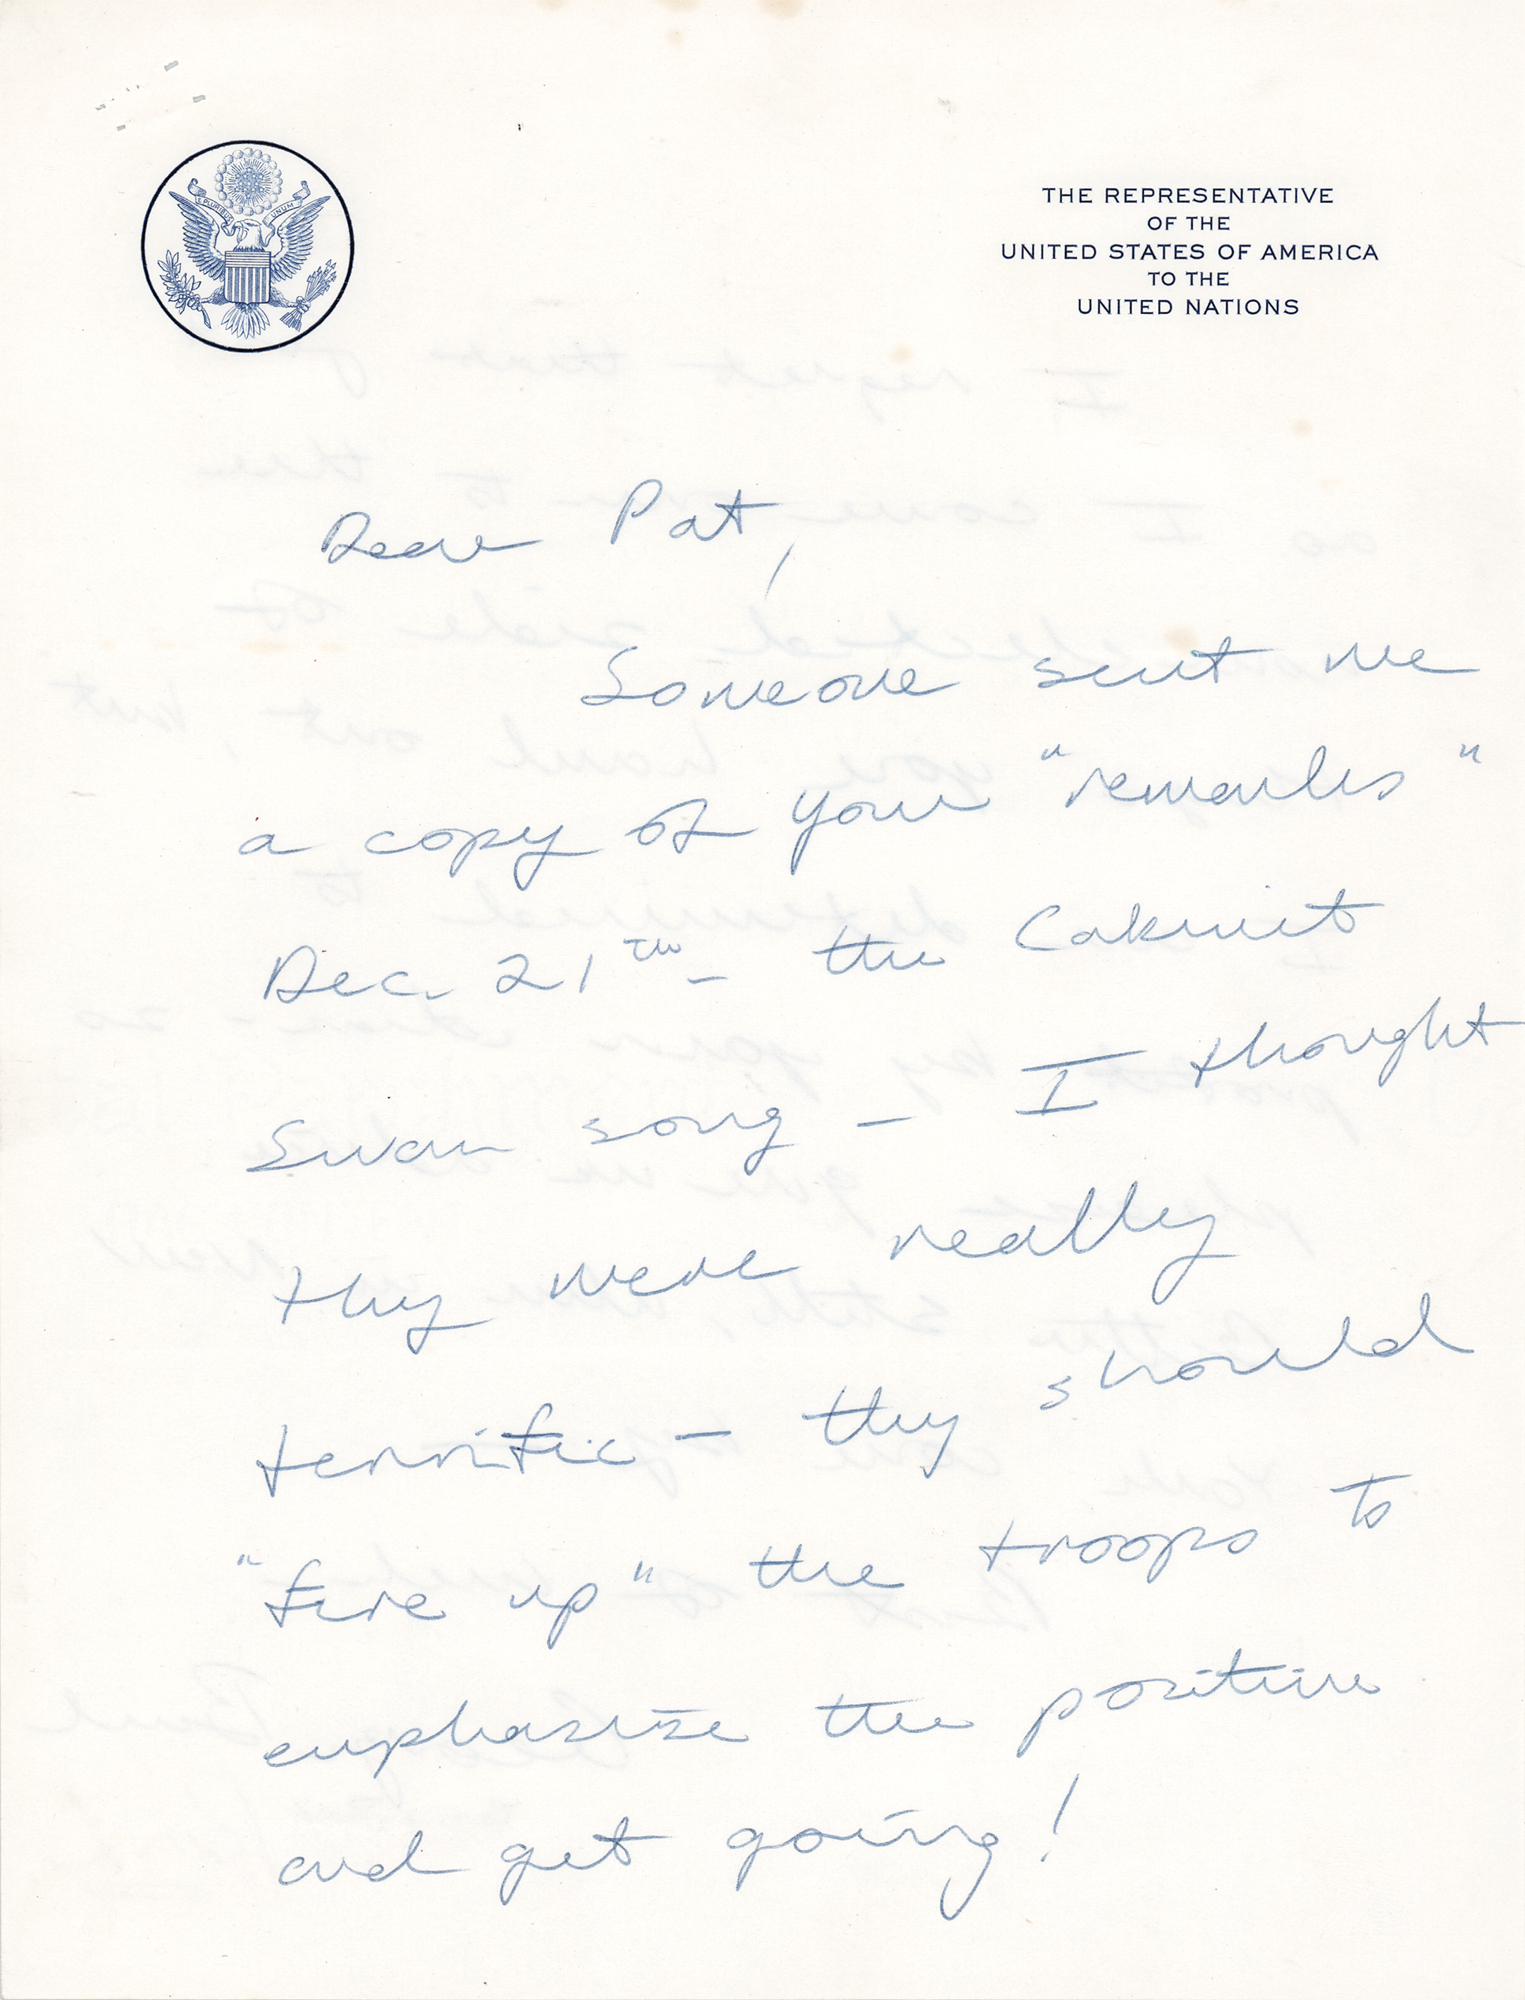 E PLURIBUS UNUM
THE REPRESENTATIVE
OF THE
UNITED STATES OF AMERICA
TO THE
UNITED NATIONS
Dear Pat,
Someone sent me
a copy of your "remarks"
Dec. 21TH - the Cabinet
Swan song - I thought
they were really
terrific - they should
"fire up" the troops to
emphasize the positive
and get going!